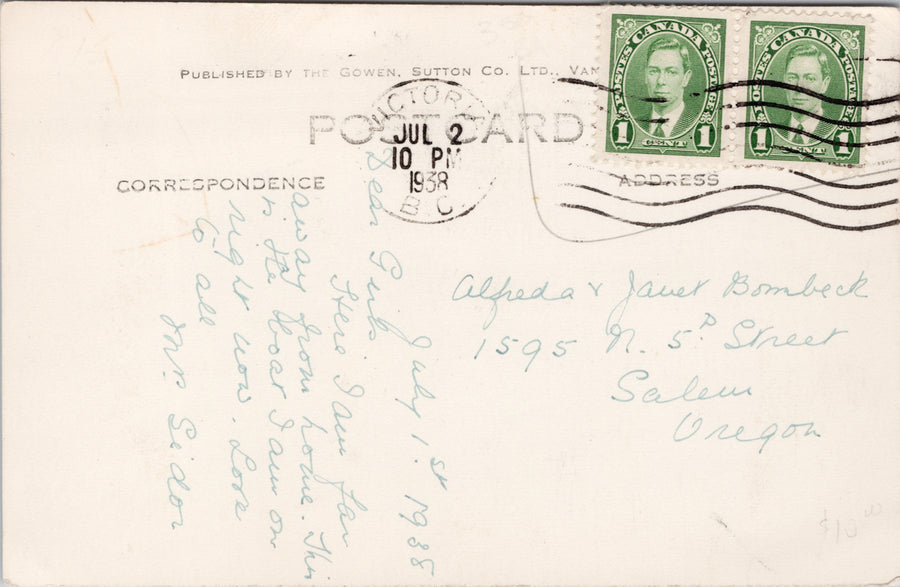 PUBLISHED BY THE GOWEN, SUTTON CO. LTD., VAN
POST CARD
CORRESPONDENCE
ADDRESS
VICTORIA
JUL 2
10 PM
1938
B C
POSTES CANADA POSTAGE
1 CENT 1
POSTES CANADA POSTAGE
1 CENT 1
July 1.st 1938
Dear Girls
Here I am far
away from home. This
is the boat I am on
right now. Love
to all
Mrs Sidor
Alfreda & Janet Bombeck
1595 N. 5th Street
Salem
Oregon
$10.00